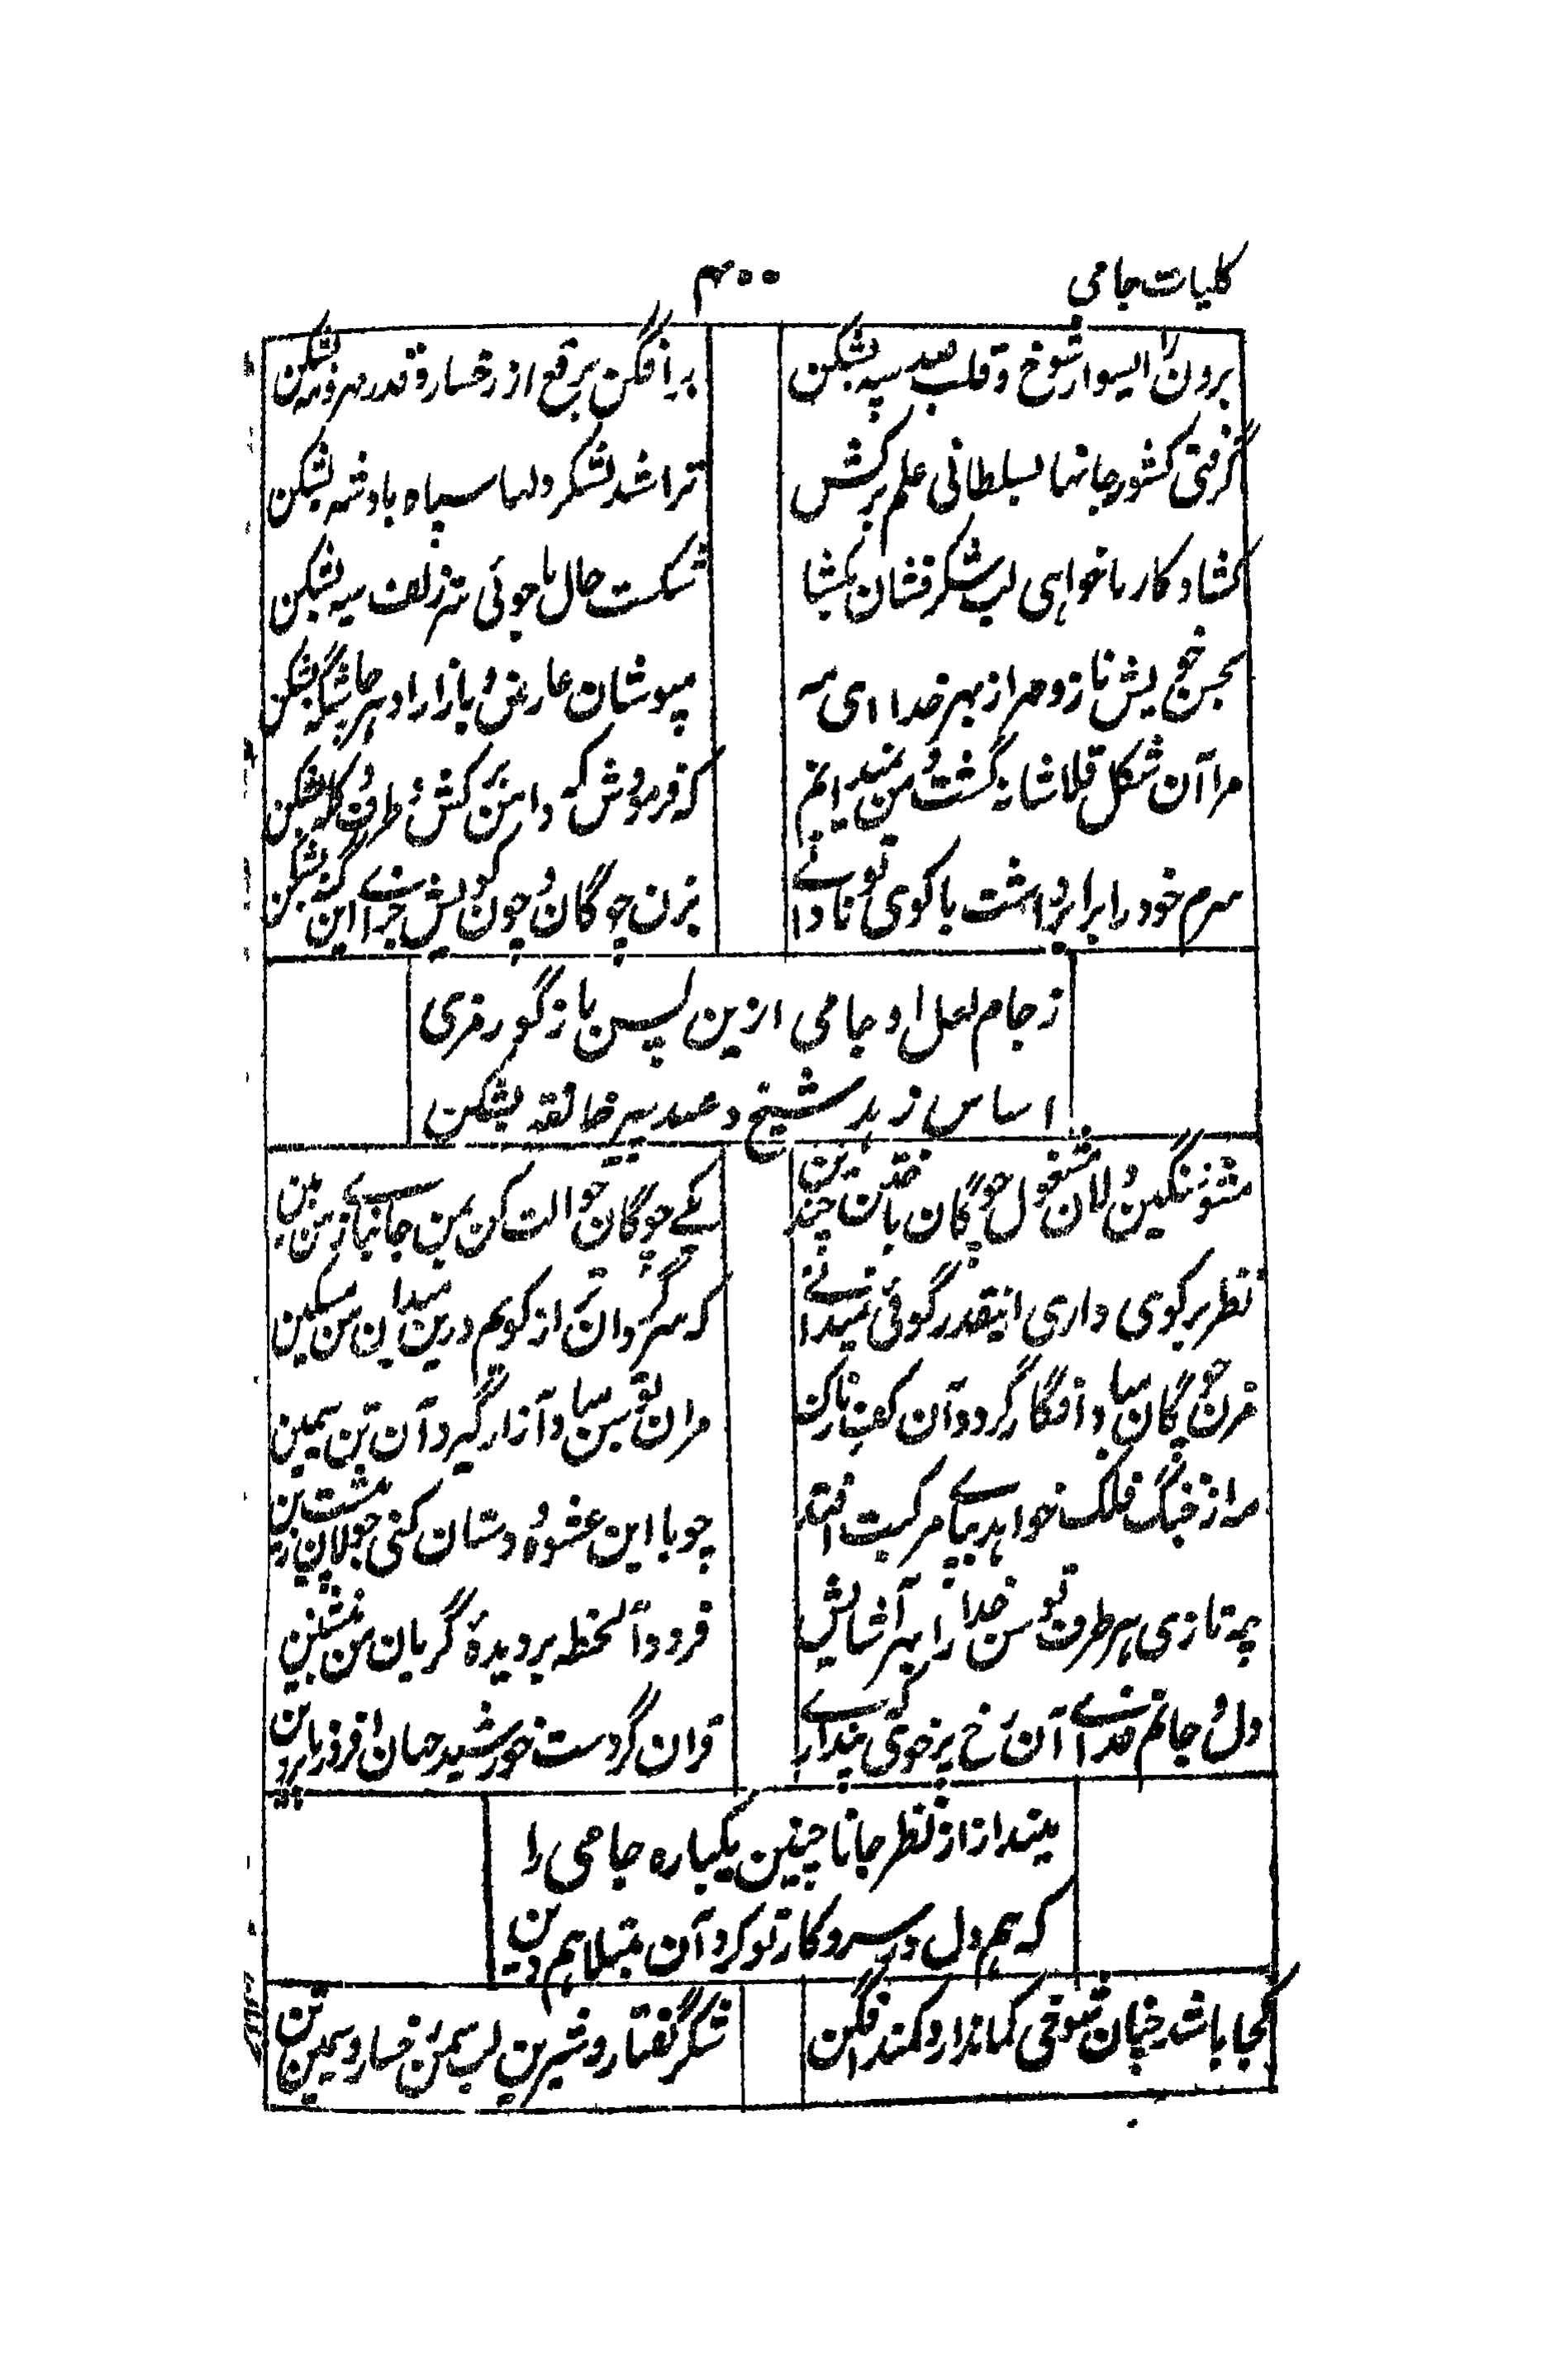 کلیات جامی
۴۰۰
برون ران ای سوار شوخ و قلب صد سپه بشکن
برافگن برقع از رخسار و قدر مهر و مه بشکن
گرفتی کشور جانها بسلطانی علم برکش
ترا شد لشکر دلها سپاه پادشه بشکن
کشاد کار ما خواهی لب شکرفشان بکشا
شکست حال ما جوئی سر زلف سیه بشکن
بحسن خویش ناز و مهر از بهر خدا ای مه
مپوشان عارض و بازار او هر چاشتگه بشکن
مرا آن شکل قلاشانه گشت و من نمیدانم
که فرمودش که دامن برکش و طرف کله بشکن
سرم خود را برابر داشت با کوی تو نادانی
بزن چوگان و چون گویش جزای این گنه بشکن
ز جام لعل او جامی ازین پس باز گو رمزی
اساس زهد شیخ و عهد پیر خانقه بشکن
مشو سنگین دلان مشغول چوگان باختن چندین
یکی چوگان حوالت کن بمن جانبازی من بین
نظر بر کوی داری اینقدر گوئی نمیدانی
که سرگردان تر از گویم درین میدان من مسکین
مزن چوگان مبادا فگار گردد آن کف نازک
مران توسن مبادا آزار گیرد آن تن سیمین
مه از خنگ فلک خواهد بپای مرکبت افتد
چو با این عشوه و دستان کنی جولان به پشت زین
چه تازی هر طرف توسن خدا را بهر آسایش
فرود آ لحظه بر دیده گریان من بنشین
دل و جانم فدای آن رخ پرخوی که پنداری
قران کردست خورشید جهان افروز با پروین
مینداز از نظر جانا چنین یکباره جامی را
که هم دل در سر و کار تو کرد آن مبتلا هم دین
کجا باشد چنان شوخی کماندار و کمند افگن
شکر گفتار و شیرین لب سمن رخسار و سیمین تن